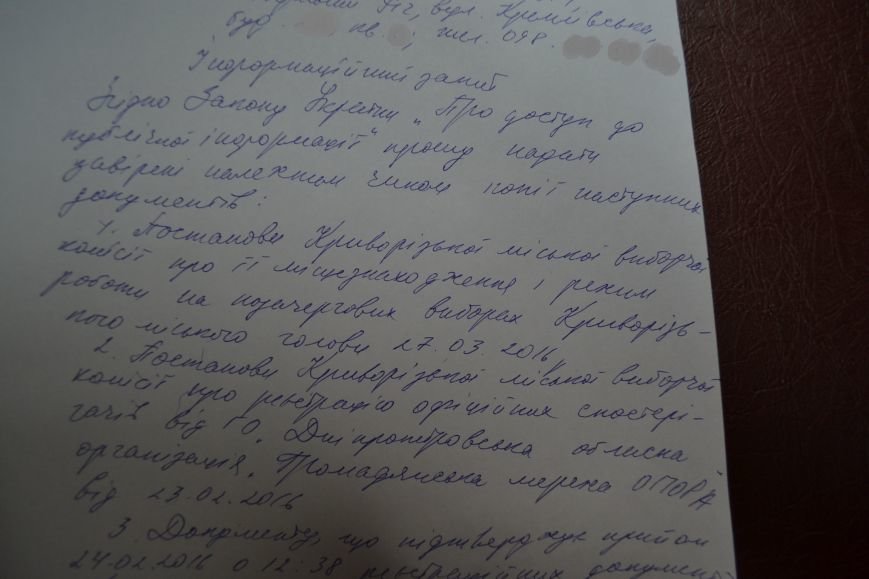 Ріг, вул. Кремлівська,
буд. , кв. , тел. 098.
Інформаційний запит
Згідно Закону України „Про доступ до
публічної інформації" прошу надати
завірені належним чином копії наступних
документів:
1. Постанови Криворізької міської виборчої
комісії про її місцезнаходження і режим
роботи на позачергових виборах Криворізь-
кого міського голови 27.03.2016
2. Постанови Криворізької міської виборчої
комісії про реєстрацію офіційних спостері-
гачів від ГО „Дніпропетровська обласна
організація „Громадянська мережа ОПОРА"
від 23.02.2016
3. Документу, що підтверджує прийом
24.02.2016 о 12:38 реєстраційних